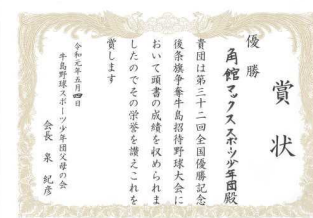 賞状
優勝
角館マックススポーツ少年団殿
貴団は第三十二回全国優勝記念
後条旗争奪牛島招待野球大会に
おいて頭書の成績を収められま
したのでその栄誉を讃えこれを
賞します
令和元年五月四日
牛島野球スポーツ少年団父母の会
会長 泉紀彦